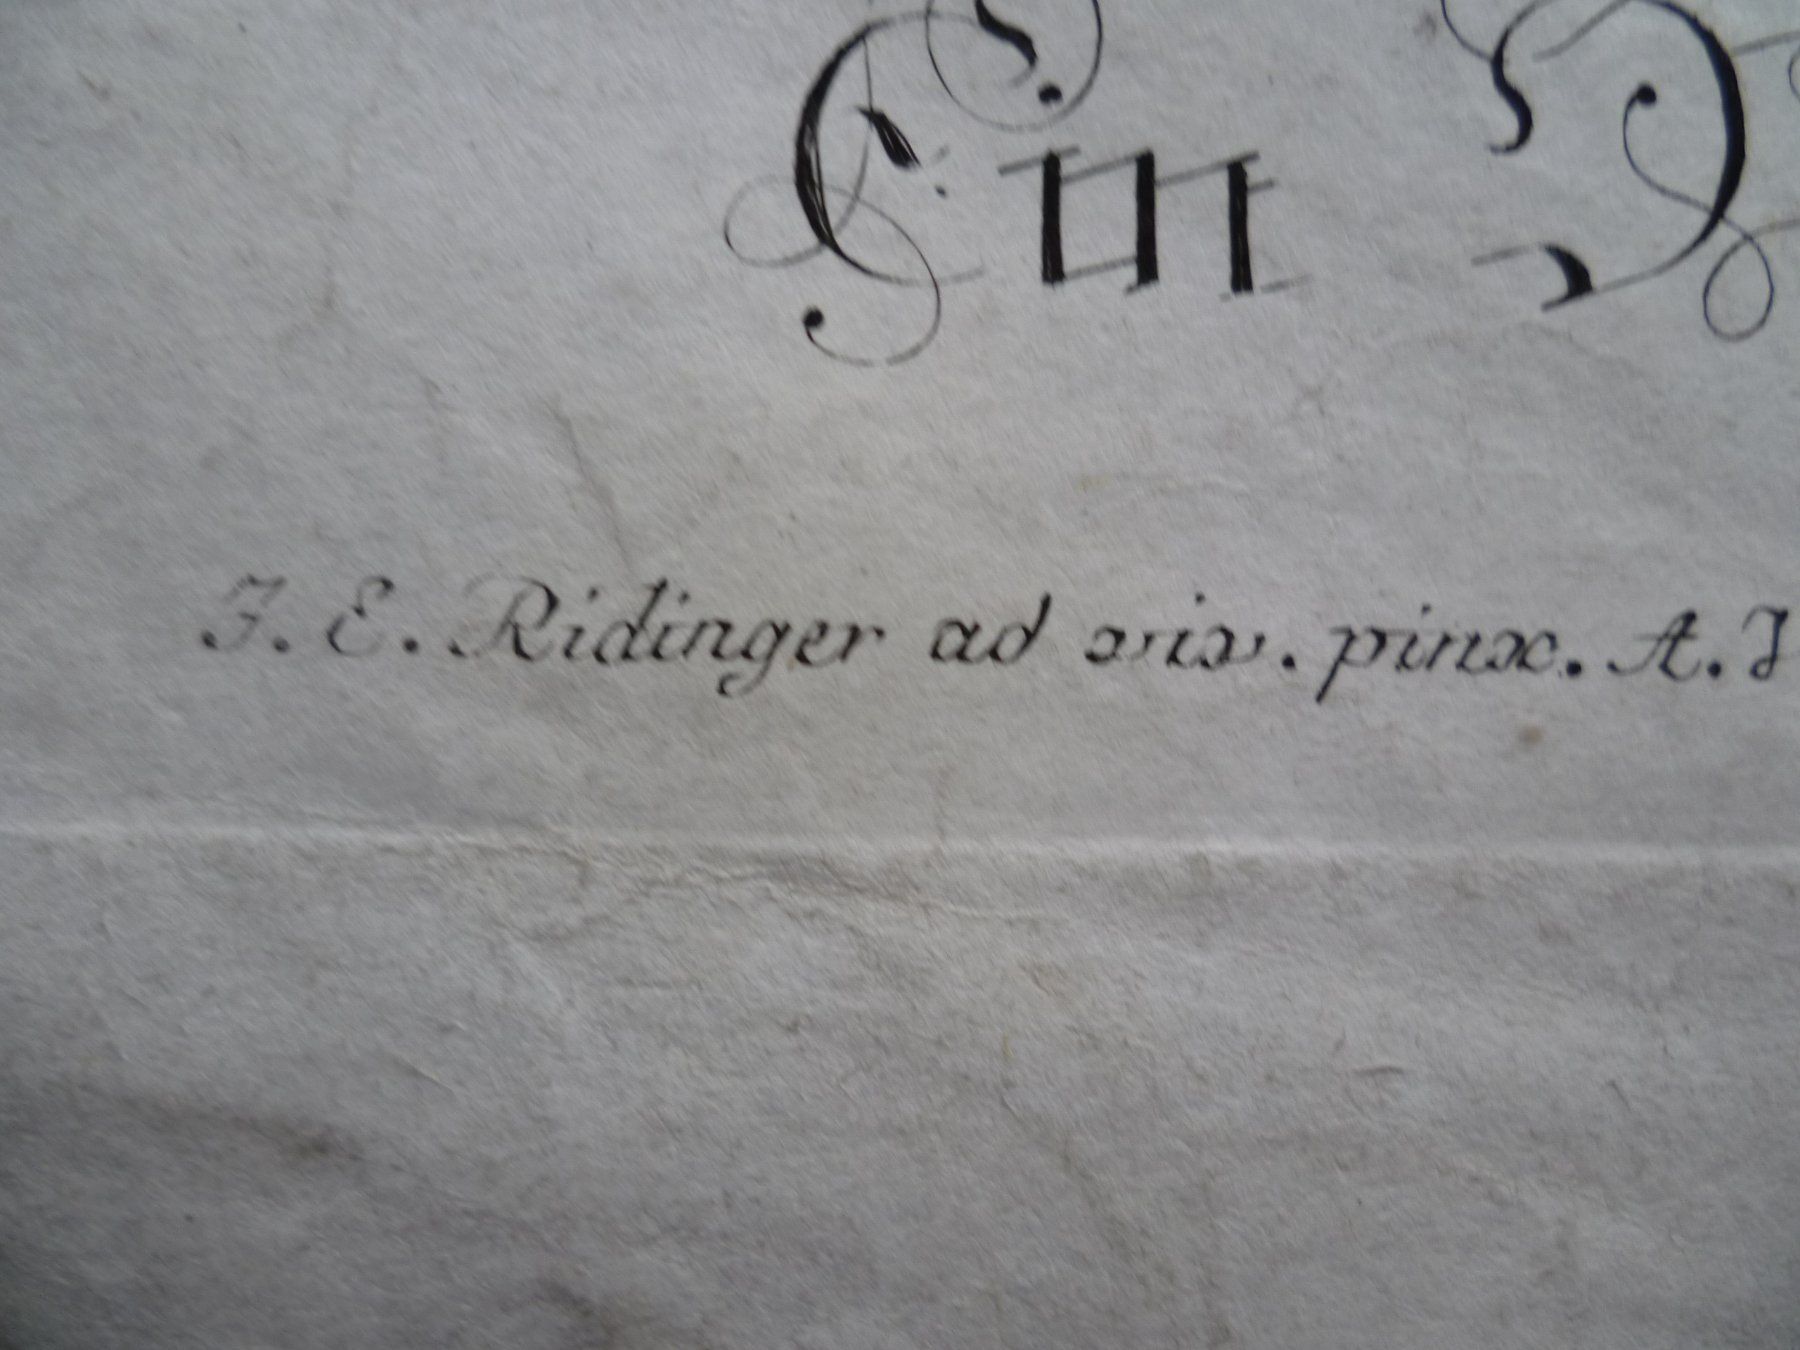 Em D
J. E. Ridinger ad viv. pinx. A. J